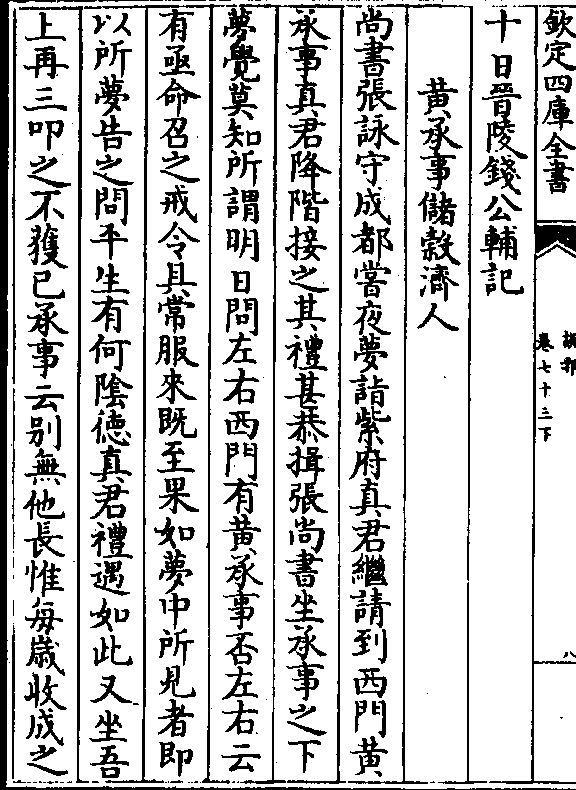 欽定四庫全書
說郛
卷七十三下
八
十日晉陵錢公輔記
黄承事儲穀濟人
尚書張詠守成都嘗夜夢詣紫府真君繼請到西門黄
承事真君降階接之其禮甚恭揖張尚書坐承事之下
夢覺莫知所謂明日問左右西門有黄承事否左右云
有亟命召之戒令具常服來既至果如夢中所見者即
以所夢告之問平生有何陰德真君禮遇如此又坐吾
上再三叩之不獲已承事云别無他長惟每歲收成之